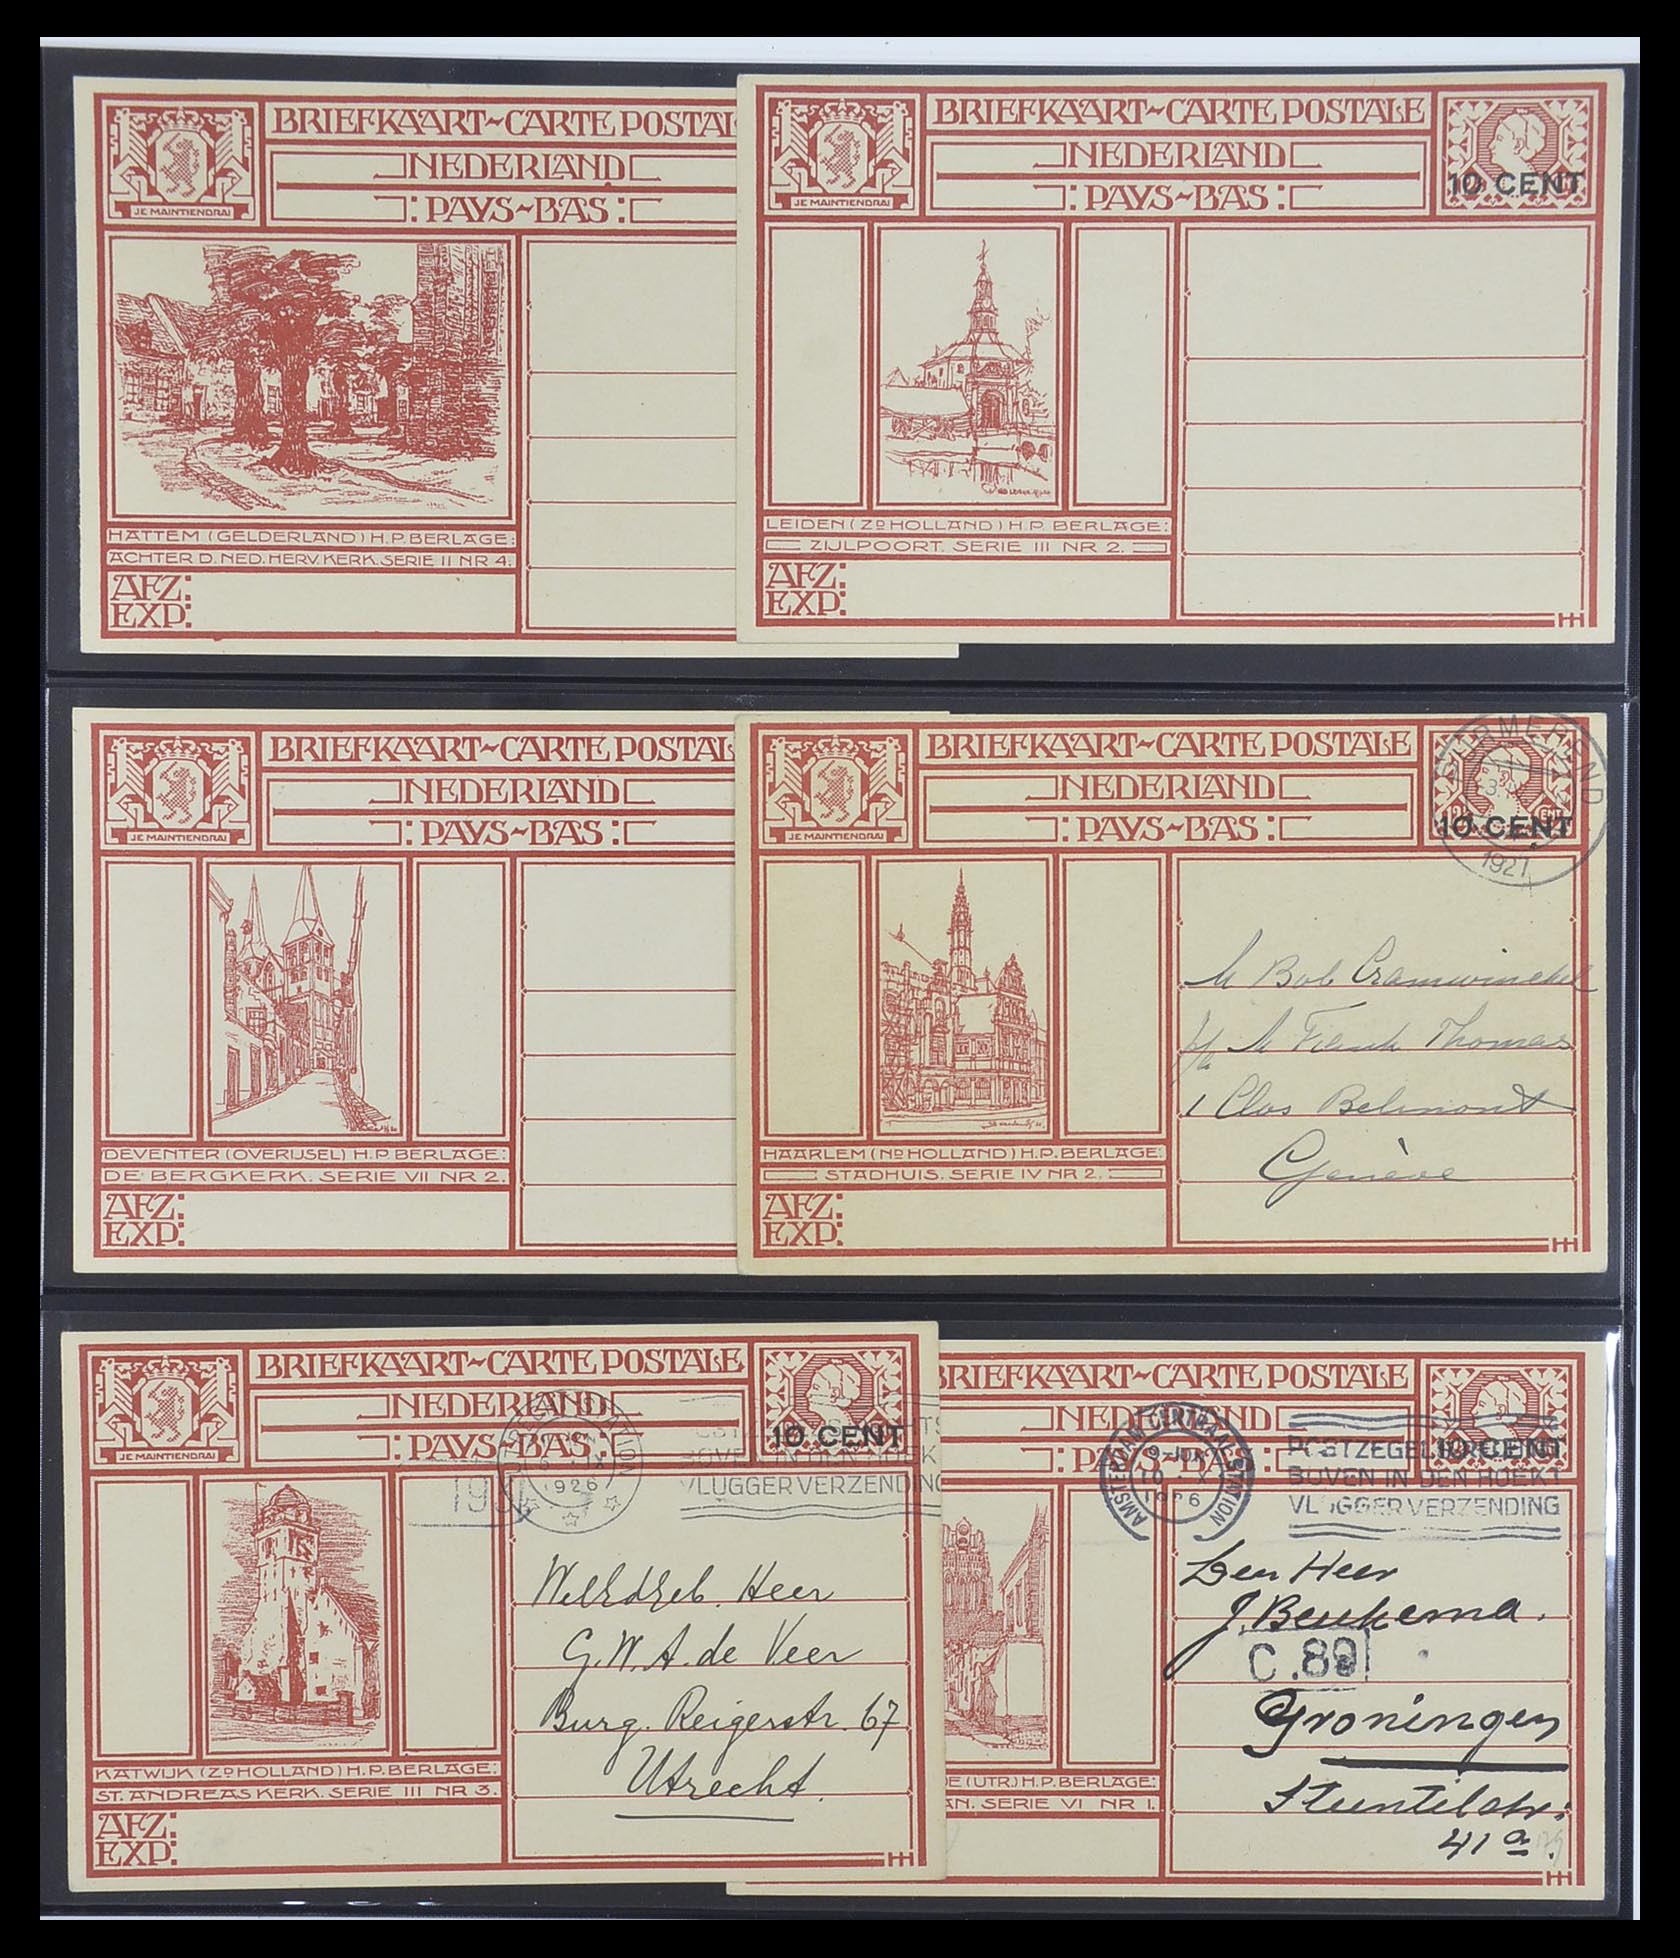 BRIEFKAART~CARTE POSTAL
NEDERLAND
: PAYS~BAS :
JE MAINTIENDRAI
HATTEM (GELDERLAND) H.P. BERLAGE:
ACHTER D. NED. HERV. KERK. SERIE II NR 4.
AFZ:
EXP:
BRIEFKAART~CARTE POSTALE
NEDERLAND
: PAYS~BAS :
JE MAINTIENDRAI
10 CENT
LEIDEN (ZD HOLLAND) H.P. BERLAGE:
ZIJLPOORT. SERIE III NR 2.
AFZ:
EXP:
BRIEFKAART~CARTE POSTAL
NEDERLAND
: PAYS~BAS :
JE MAINTIENDRAI
DEVENTER (OVERIJSEL) H.P. BERLAGE:
DE BERGKERK. SERIE VII NR 2.
AFZ:
EXP:
BRIEFKAART~CARTE POSTALE
NEDERLAND
: PAYS~BAS :
JE MAINTIENDRAI
10 CENT
PURMEREND
1927
M Bob Cramwinckel
p/a M Frank Thomas
1 Clos Belmont
Genève
HAARLEM (ND HOLLAND) H.P. BERLAGE:
STADHUIS. SERIE IV NR 2.
AFZ:
EXP:
BRIEFKAART~CARTE POSTALE
NEDERLAND
: PAYS~BAS :
JE MAINTIENDRAI
10 CENT
1926
BOVEN IN DEN HOEK
VLUGGER VERZENDING
WelEdGeb. Heer
G.W.A. de Veer
Burg. Reigerstr. 67
Utrecht.
KATWIJK (ZD HOLLAND) H.P. BERLAGE:
ST. ANDREAS KERK. SERIE III NR 3.
AFZ:
EXP:
BRIEFKAART~CARTE POSTALE
NEDERLAND
PAYS~BAS :
10 CENT
AMSTERDAM CENTRAAL STATION
9 JUN
10 - X
1926
BOVEN IN DEN HOEK
VLUGGER VERZENDING
Den Heer
J. Beukema.
C.89
Groningen
Steentilstr.
41a.
DE (UTR.) H.P. BERLAGE:
AN. SERIE VI NR 1.